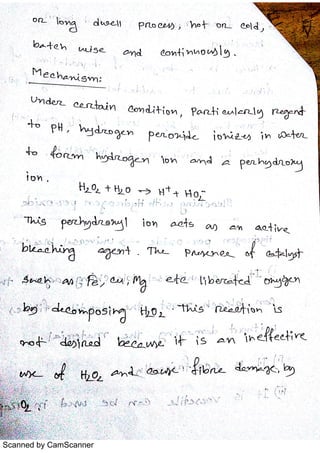 or long dwell process, hot or cold,
batch wise and continuously.
Mechanism:
Under certain condition, particularly regend
to pH, hydrogen peroxide ionizes in water
to form hydrogen ion and a perhydroxy
ion.
H₂O₂ + H₂O → H⁺ + HO₂⁻
This perhydroxyl ion acts as an active
bleaching agent. The presence of catalyst
such as Fe, Cu, Mg etc liberated oxygen
by decomposing H₂O₂. This reaction is
not desired because it is an ineffective
use of H₂O₂ and cause fibre damage, by
O₂.
Scanned by CamScanner